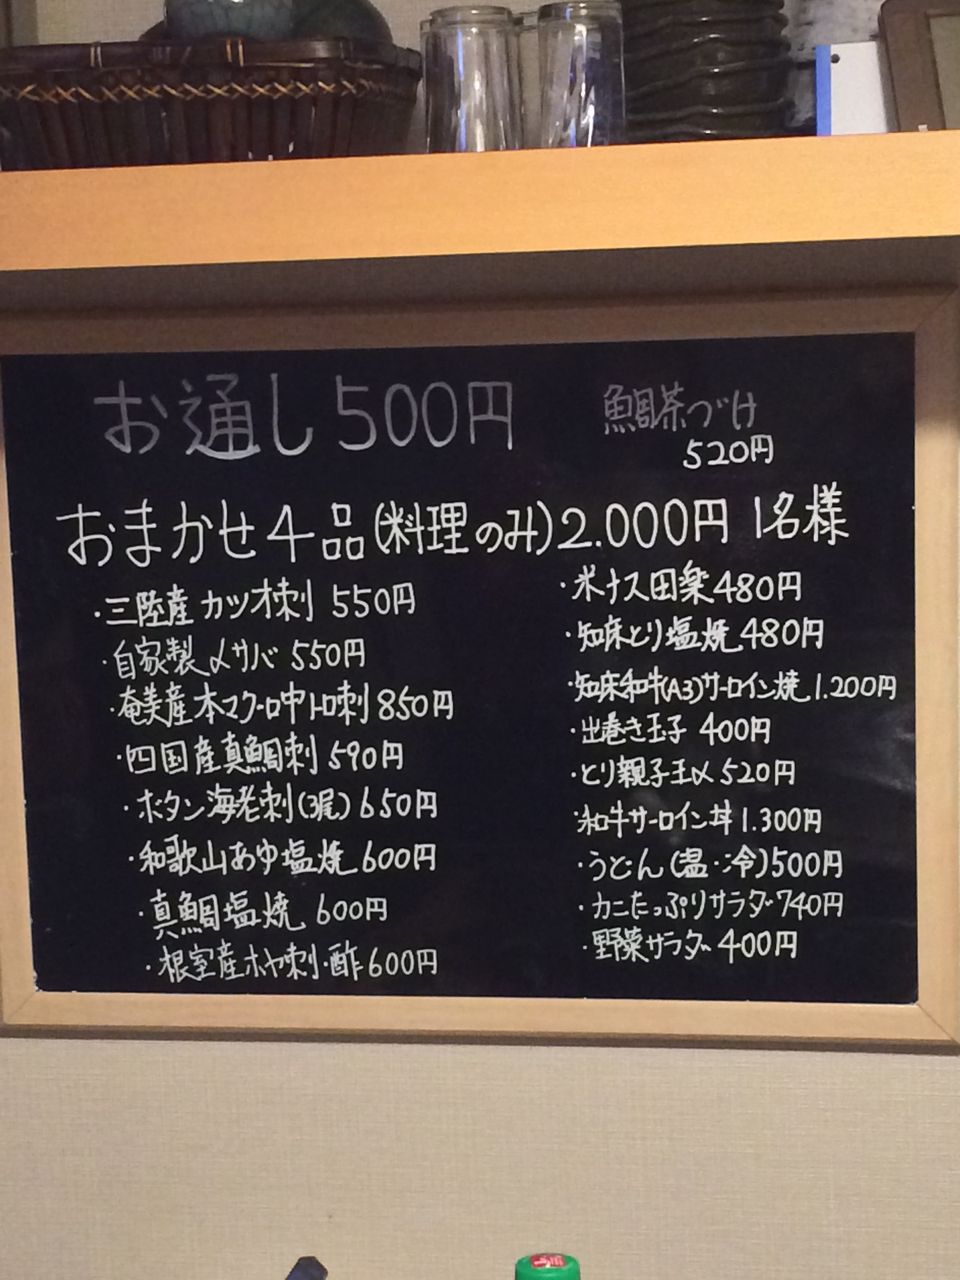 お通し500円
鯛茶づけ
520円
おまかせ4品(料理のみ)2.000円 1名様
・三陸産カツオ刺 550円
・自家製〆サバ 550円
・奄美産本マグロ中トロ刺 850円
・四国産真鯛刺 590円
・ボタン海老刺(3尾) 650円
・和歌山あゆ塩焼 600円
・真鯛塩焼 600円
・根室産ホヤ刺・酢 600円
・米ナス田楽 480円
・知床とり塩焼 480円
・知床和牛(A3)サーロイン焼 1.200円
・出巻き玉子 400円
・とり親子玉〆 520円
・和牛サーロイン丼 1.300円
・うどん(温・冷) 500円
・カニたっぷりサラダ 740円
・野菜サラダ 400円